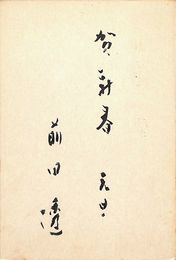 賀新春 元旦
前田